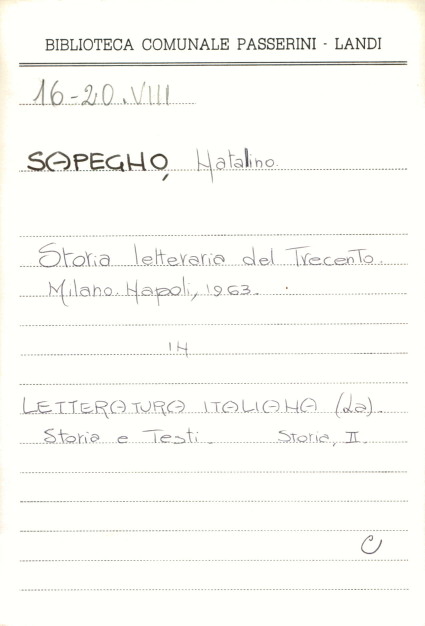 BIBLIOTECA COMUNALE PASSERINI - LANDI
16-20.VIII
SAPEGNO, Natalino.
Storia letteraria del Trecento.
Milano. Napoli, 1963.
IN
LETTERATURA ITALIANA (La).
Storia e Testi. Storia, II.
C